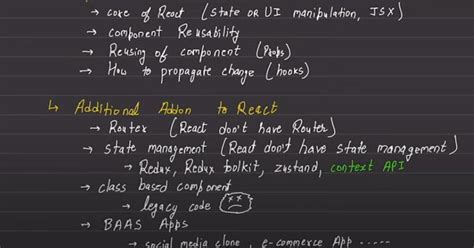 → core of React (state OR UI manipulation, JSX)
→ component Reusability
→ Reusing of component (Props)
→ How to propagate change (hooks)
↳ Additional Addon to React
→ Router (React don't have Router)
→ state management (React don't have state management)
→ Redux, Redux toolkit, zustand, context API
→ class based component
→ legacy code
→ BAAS Apps
→ social media clone, e-commerce App .....